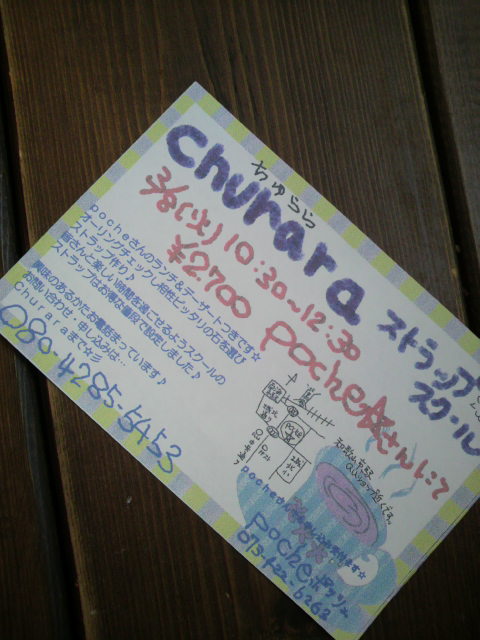 ちゅらら
churara ストラップスクール
3/8(火) 10:30~12:30
¥2.700 poche★さんにて
pocheさんのランチ&デザートつきです☆
オーリングチェックし相性ピッタリの石を選び
ストラップ作り♪
皆さんと楽しい時間を過ごせるようスクールの
ストラップはお得な値段で設定しました♪
興味のあるかたお電話まっています♪
お問い合わせ・申し込みは…
Churaraまで☆彡
080-4285-6453
和歌山市駅
auショップ近くです。
poche ポッシュ
073-422-6262